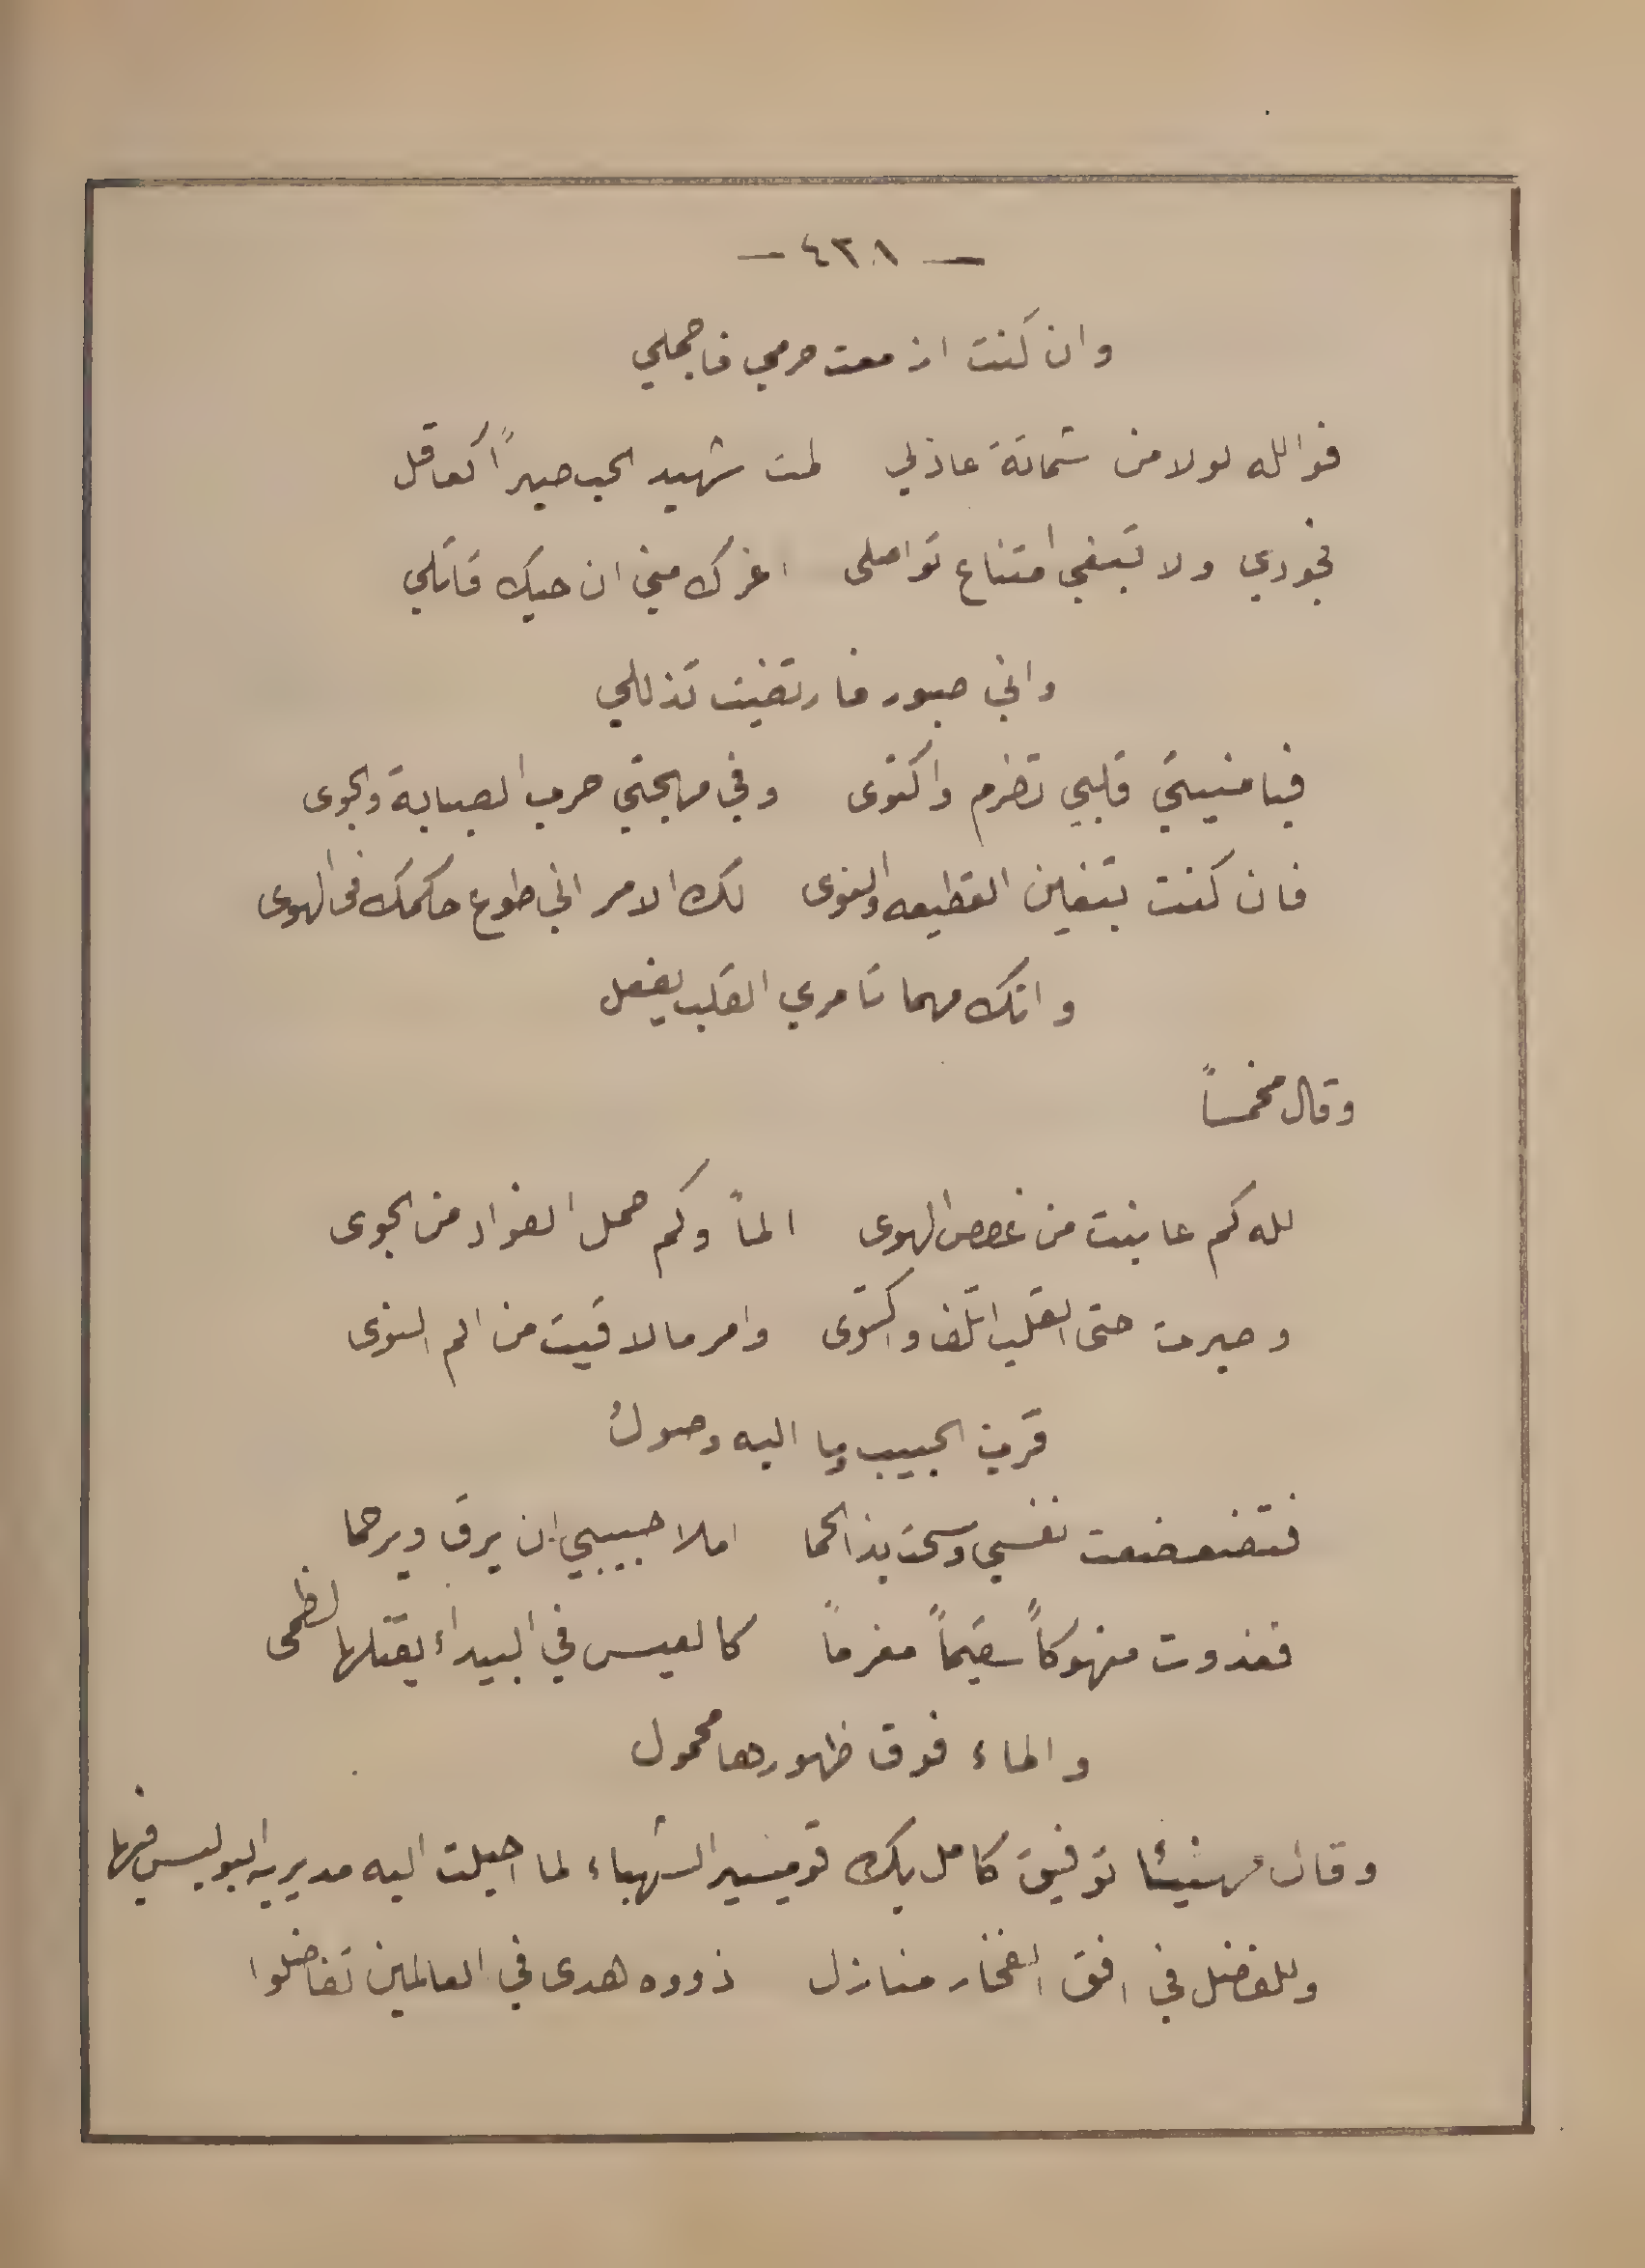 — ٤٣٨ —
وان كنت ازمعت صرمي فاجملي
فوالله لولا من شماتة عاذلي لمت شهيد الحب صبراً كعاقل
فجودي ولا تبغي امتناع تواصلى اغرك مني ان حبك قاتلي
واني صبور فارتضيت تذللي
فيا منيتي قلبي تضرم واكتوى وفي مهجتي حرب الصبابة والجوى
فان كنت بتغين القطيعه والنوى لك الامر اني طوع حكمك فى الهوى
وانك مهما تامري القلب يفعل
وقال مخمساً
لله كم عاينت من غصص الهوى الماً وكم حمل الفواد من الجوى
وصبرت حتى القلب اتلف واكتوى وامر ما لاقيت من الم النوى
قرب الحبيب وما اليه وصولُ
فتضعضعت نفسي وسحت بذا الحما املا حبيبي ان يرق ويرحما
فغدوت منهوكاً سقيماً مغرماً كالعيس في البيداء يقتلها لظمى
والماء فوق ظهورها محمول
وقال مهنئا توفيق كامل بك قوميسير الشهباء لما احيلت اليه مديريه البوليس فيها
وللفضل في افق الفخار منازل ذووه هدى في العالمين تفاضلوا